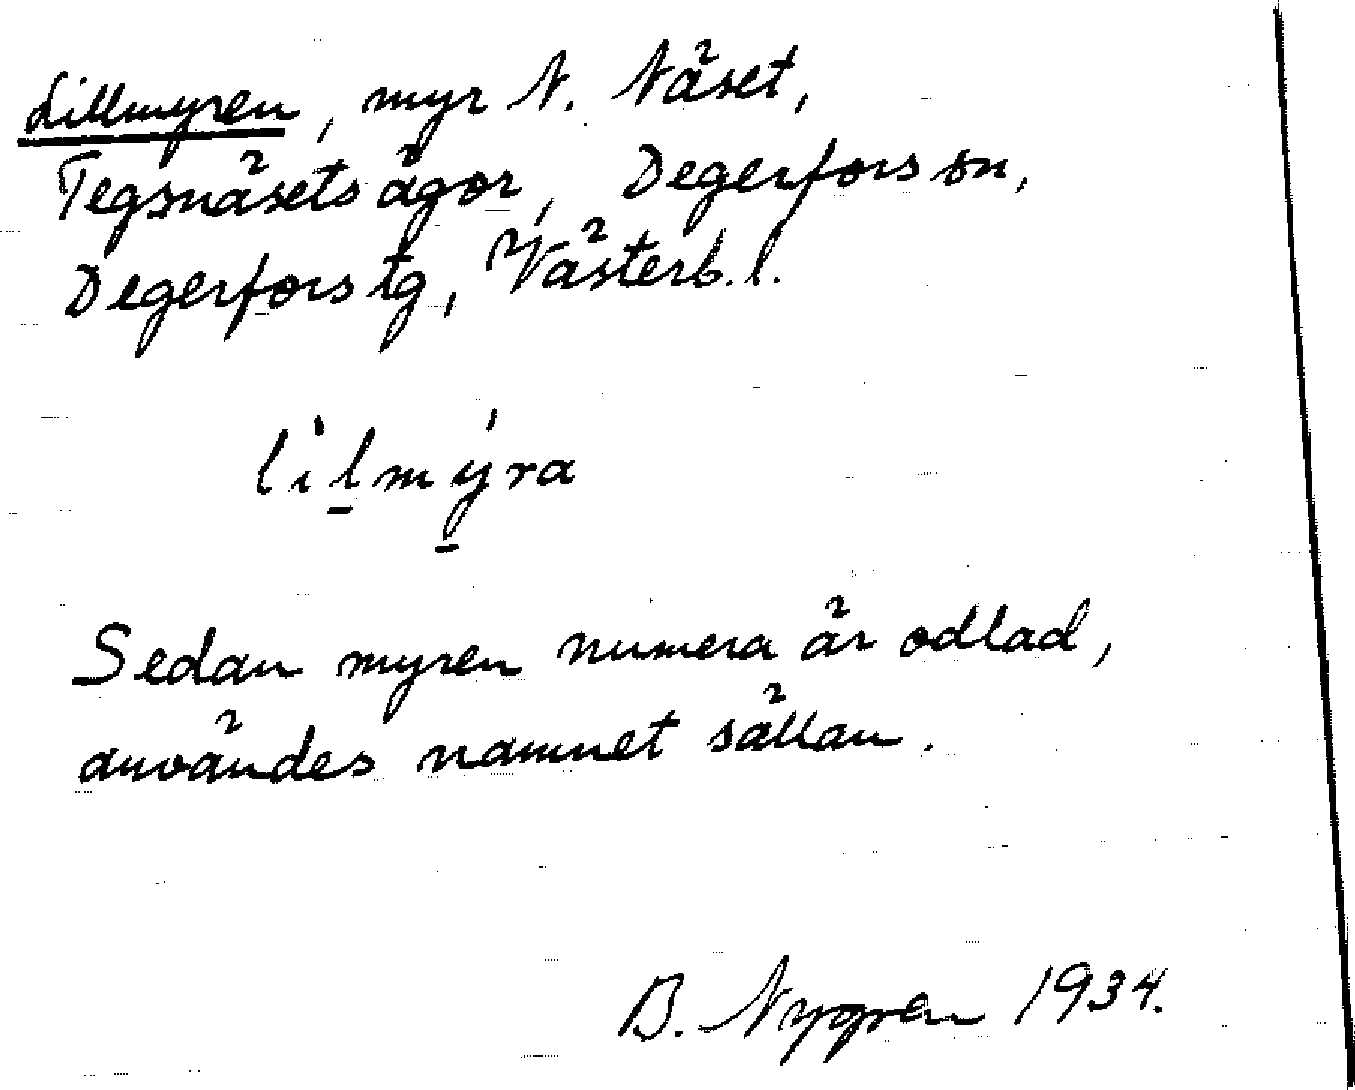 Lillmyren, myr N. Näset,
Tegsnäsets ägor, Degerfors sn,
Degerfors tg, Västerb. l.
lìl̠mý̠ra
Sedan myren numera är odlad,
användes namnet sällan.
B. Nygren 1934.